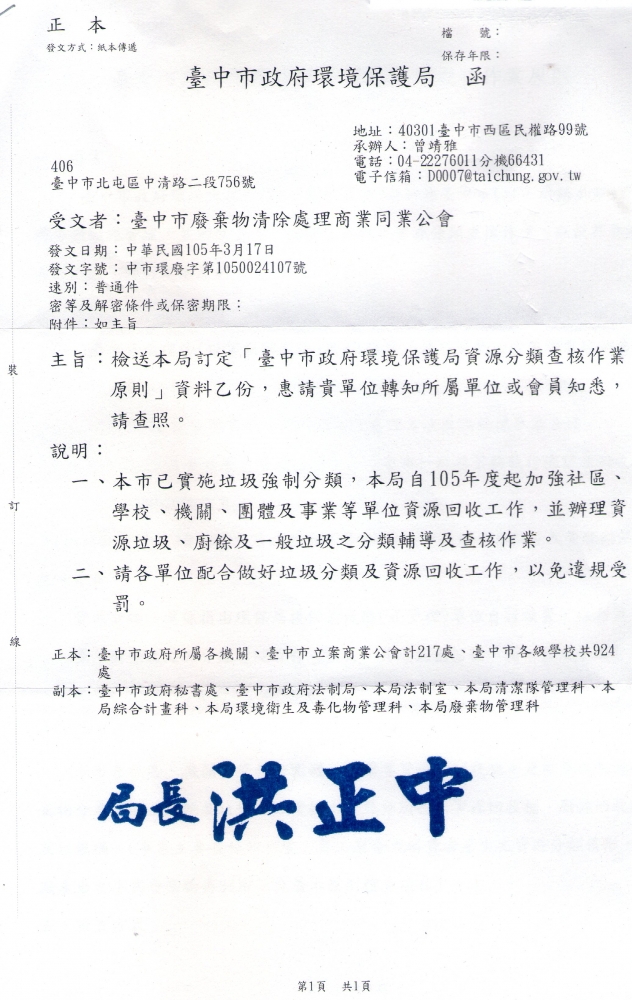 正 本
發文方式：紙本傳遞
檔　　號：
保存年限：
臺中市政府環境保護局　函
地址：40301臺中市西區民權路99號
承辦人：曾靖雅
電話：04-22276011分機66431
電子信箱：D0007@taichung.gov.tw
406
臺中市北屯區中清路二段756號
受文者：臺中市廢棄物清除處理商業同業公會
發文日期：中華民國105年3月17日
發文字號：中市環廢字第1050024107號
速別：普通件
密等及解密條件或保密期限：
附件：如主旨
主旨：檢送本局訂定「臺中市政府環境保護局資源分類查核作業
原則」資料乙份，惠請貴單位轉知所屬單位或會員知悉，
請查照。
說明：
一、本市已實施垃圾強制分類，本局自105年度起加強社區、
學校、機關、團體及事業等單位資源回收工作，並辦理資
源垃圾、廚餘及一般垃圾之分類輔導及查核作業。
二、請各單位配合做好垃圾分類及資源回收工作，以免違規受
罰。
正本：臺中市政府所屬各機關、臺中市立案商業公會計217處、臺中市各級學校共924
處
副本：臺中市政府秘書處、臺中市政府法制局、本局法制室、本局清潔隊管理科、本
局綜合計畫科、本局環境衛生及毒化物管理科、本局廢棄物管理科
裝
訂
線
局長 洪正中
第1頁　共1頁